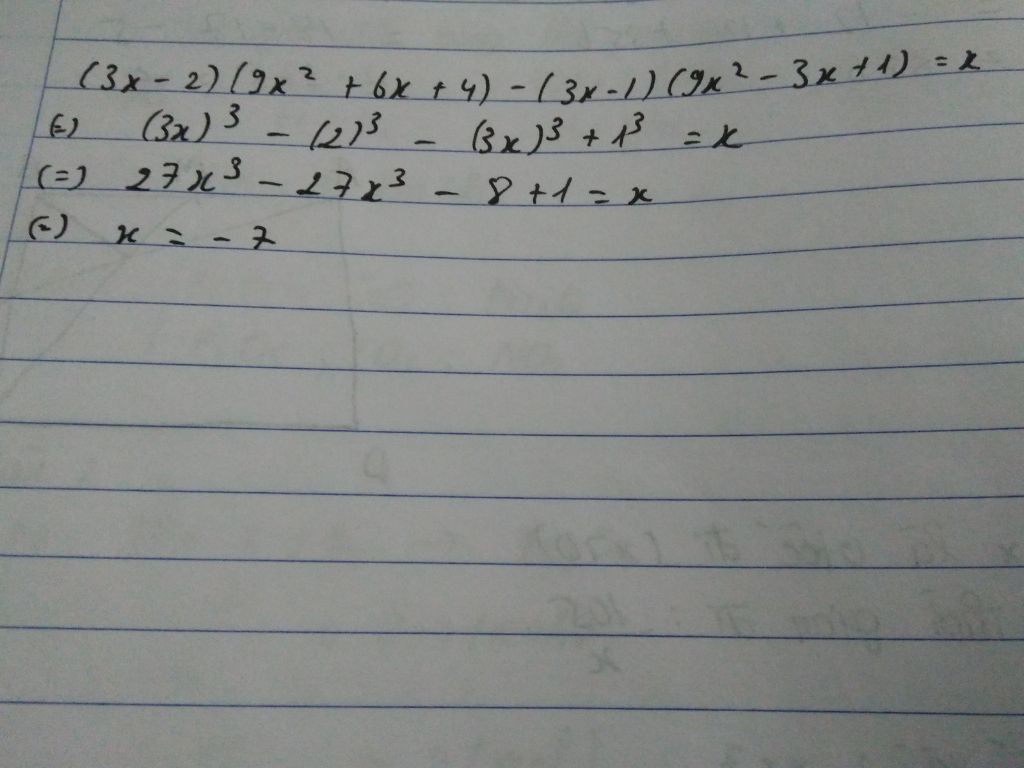 (3x - 2)(9x² + 6x + 4) - (3x - 1)(9x² - 3x + 1) = x
(=) (3x)³ - (2)³ - (3x)³ + 1³ = x
(=) 27x³ - 27x³ - 8 + 1 = x
(=) x = - 7